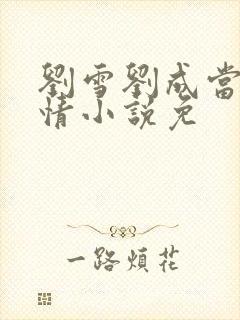 劉雪劉成當
情小說免
一路煩花